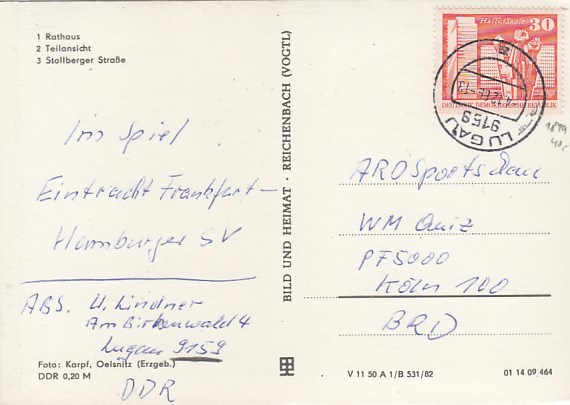 1 Rathaus
2 Teilansicht
3 Stollberger Straße
Im Spiel
Eintracht Frankfurt –
Hamburger SV
ABS. U. Lindner
Am Birkenwald 4
Lugau 9159
DDR
Foto: Karpf, Oelsnitz (Erzgeb.)
DDR 0,20 M
BILD UND HEIMAT · REICHENBACH (VOGTL)
Halle-Saale
30
DEUTSCHE DEMOKRATISCHE REPUBLIK
9159 LUGAU
1899
40,-
ARD Sportschau
WM Quiz
PF 5000
Köln 100
BRD
V 11 50 A 1/B 531/82
01 14 09 464